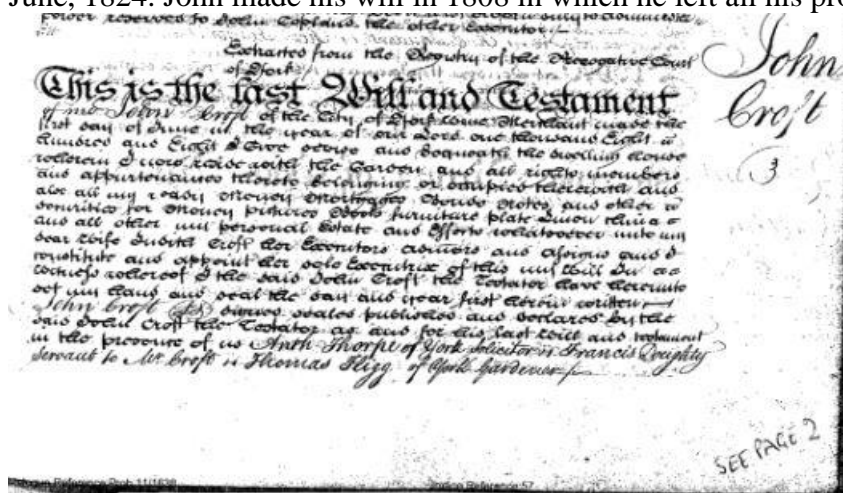 June, 1824. John made his will in 1808 in which he left all his pro
power reserved to John Copland the other Executor
Extracted from the Registry of the Prerogative Court
of York
This is the last Will and Testament
of me John Croft of the City of York Wine Merchant made the
first day of June in the year of our Lord one thousand Eight
hundred and Eight I Give devise and bequeath the dwelling house
wherein I now reside with the Garden and all rights members
and appurtenances thereto belonging or occupied therewith and
also all my ready Money Mortgages Bonds Notes and other
securities for Money Pictures Books furniture plate Linen China
and all other my personal Estate and Effects whatsoever unto my
dear Wife Judith Croft her Executors admors and assigns and I
constitute and appoint her sole Executrix of this my Will In
witness whereof I the said John Croft the Testator have hereunto
set my hand and seal the day and year first herein written
John Croft signed sealed published and declared by the
said John Croft the Testator as and for his last Will and testament
in the presence of us Anth Thorpe of York Solicitor Francis Doughty
Servant to Mr Croft Thomas Fligg of York Gardener
John
Croft
3
SEE PAGE 2